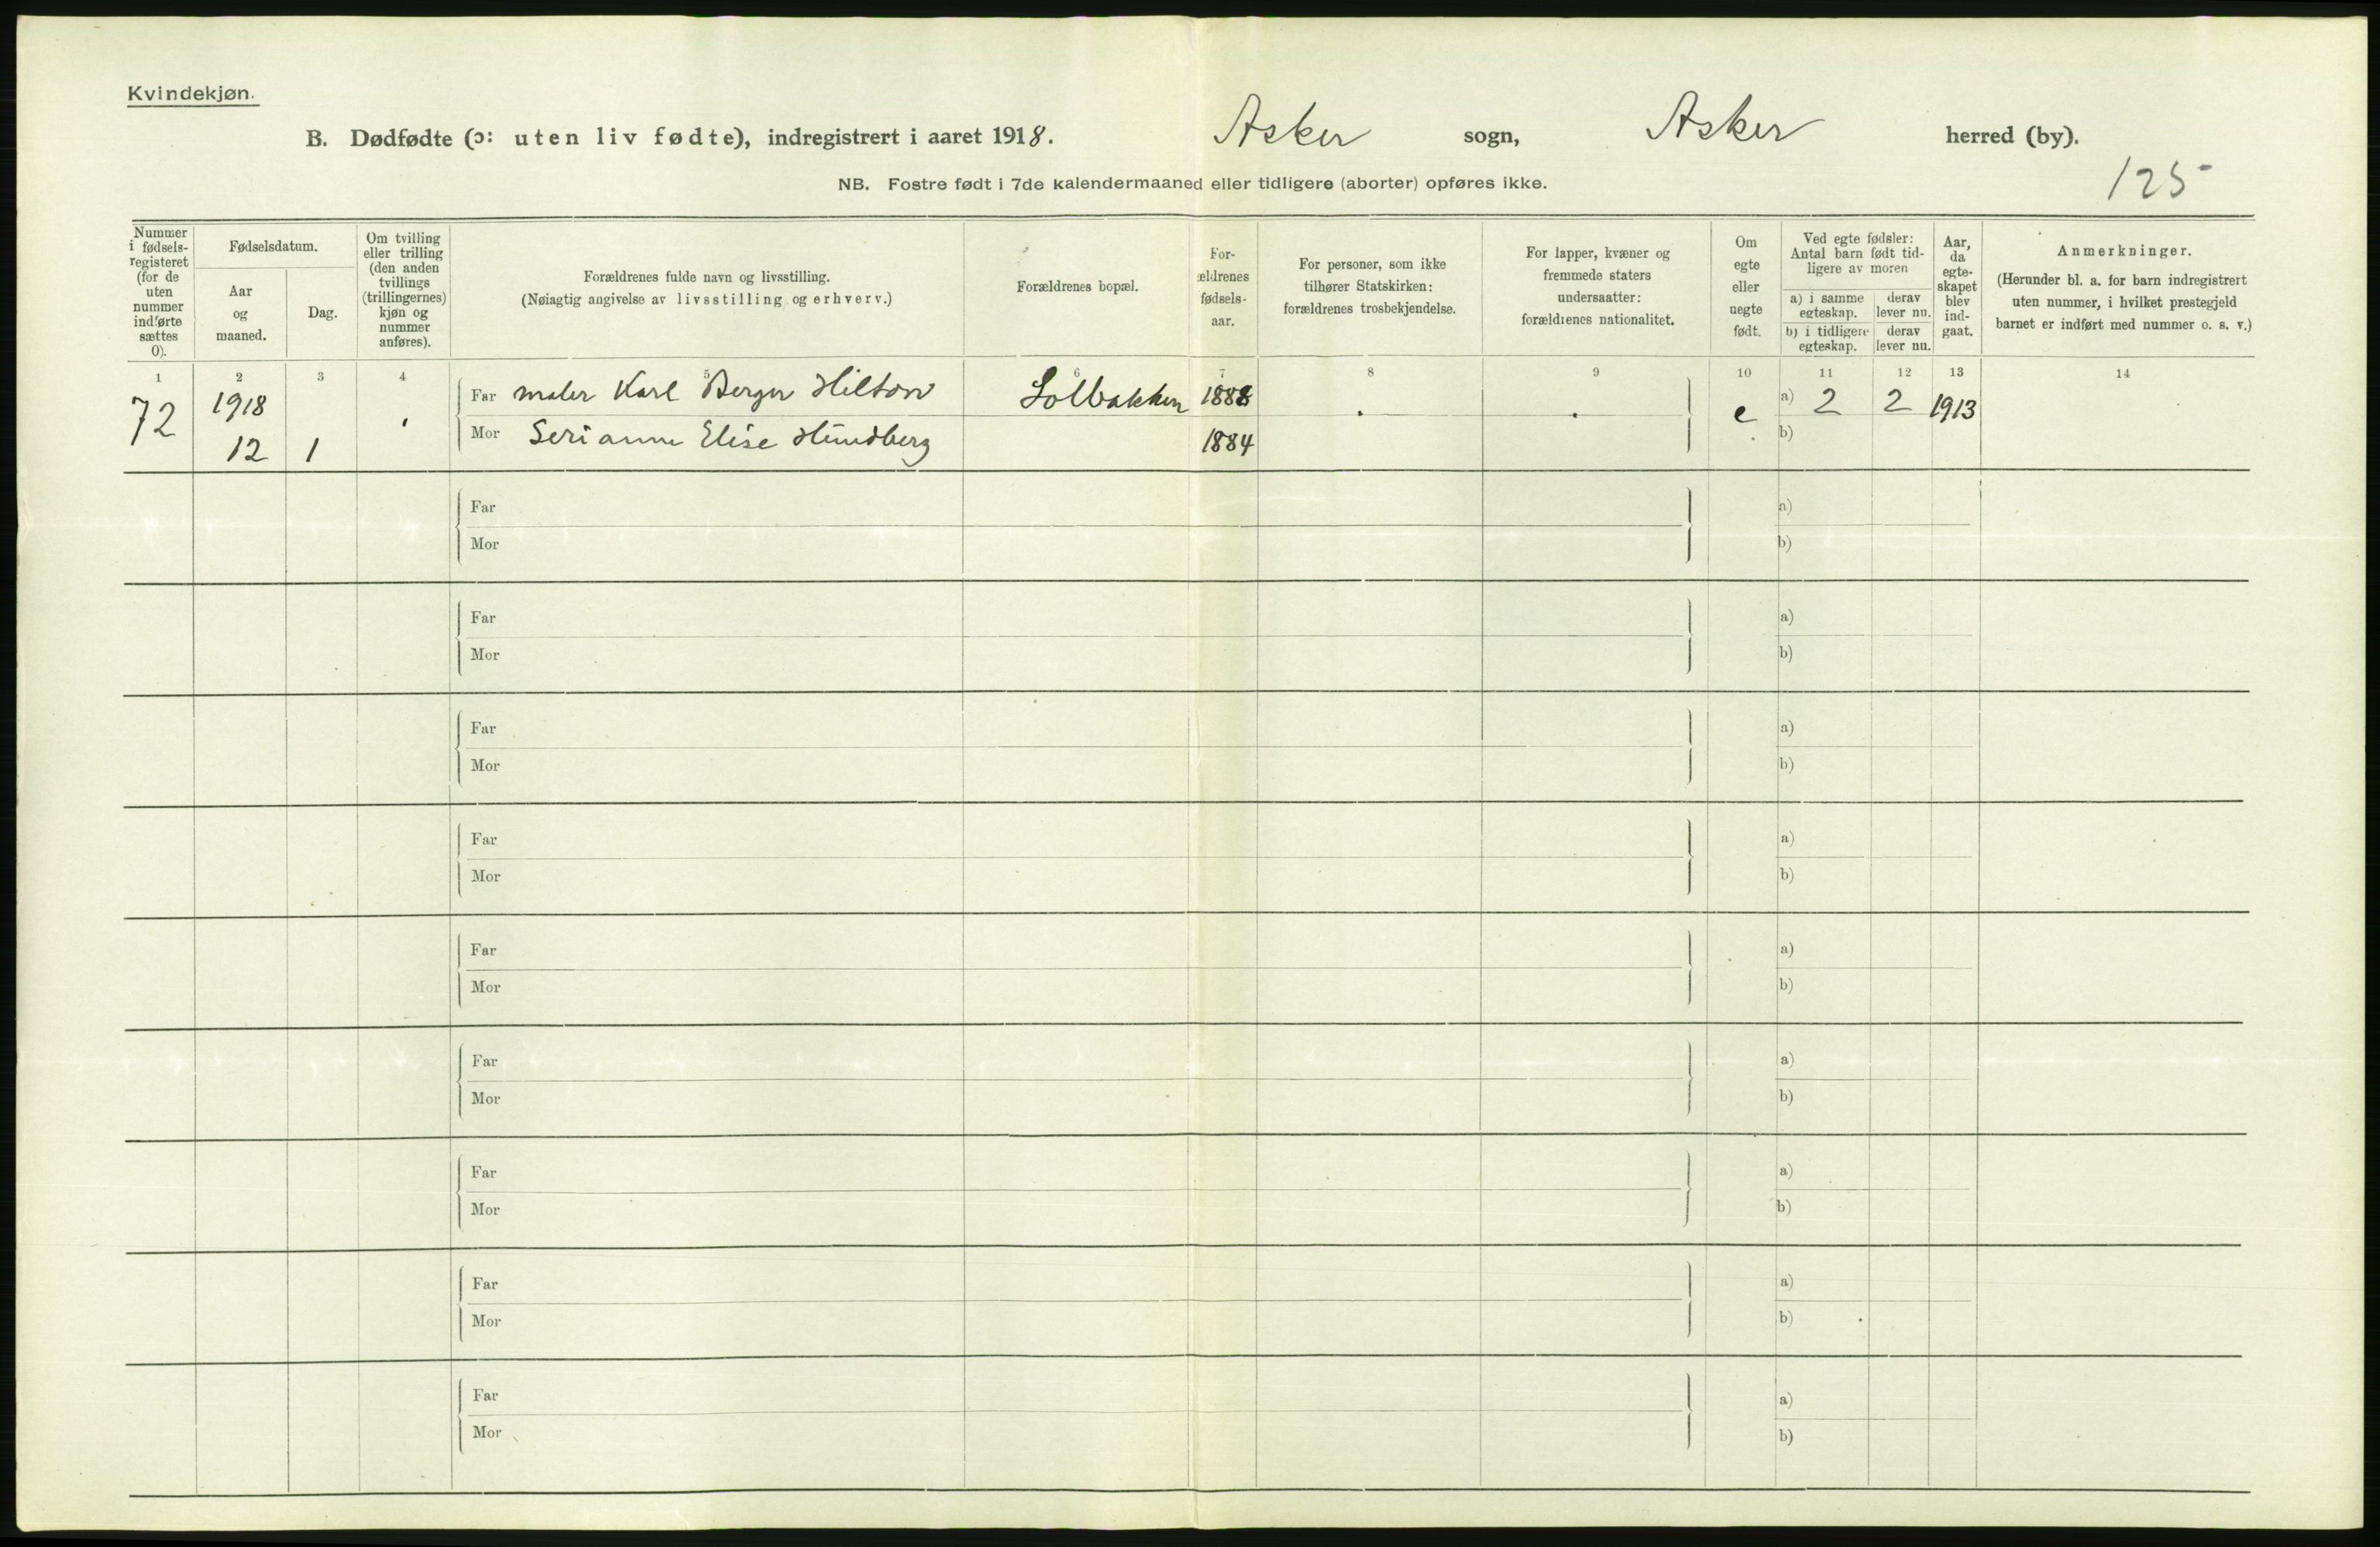 Kvindekjøn.
B. Dødfødte (ɔ: uten liv fødte), indregistrert i aaret 1918. Asker sogn, Asker herred (by).
125
NB. Fostre født i 7de kalendermaaned eller tidligere (aborter) opføres ikke.
Nummer
i fødsels-
registeret
(for de
uten
nummer
indførte
sættes
0).
Fødselsdatum.
Aar
og
maaned.
Dag.
Om tvilling
eller trilling
(den anden
tvillings
(trillingernes)
kjøn og
nummer
anføres).
Forældrenes fulde navn og livsstilling.
(Nøiagtig angivelse av livsstilling og erhverv.)
Forældrenes bopæl.
For-
ældrenes
fødsels-
aar.
For personer, som ikke
tilhører Statskirken:
forældrenes trosbekjendelse.
For lapper, kvæner og
fremmede staters
undersaatter:
forældrenes nationalitet.
Om
egte
eller
uegte
født.
Ved egte fødsler:
Antal barn født tid-
ligere av moren
a) i samme
egteskap.
derav
lever nu.
b) i tidligere
egteskap.
derav
lever nu.
Aar,
da
egte-
skapet
blev
ind-
gaat.
Anmerkninger.
(Herunder bl. a. for barn indregistrert
uten nummer, i hvilket prestegjeld
barnet er indført med nummer o. s. v.)
1 2 3 4 5 6 7 8 9 10 11 12 13 14
72 1918 Far maler Karl Berger Hilton Solbakken 1888 e a) 2 2 1913
12 1 Mor Serianne Elise Hundberg 1884 b)
Far a)
Mor b)
Far a)
Mor b)
Far a)
Mor b)
Far a)
Mor b)
Far a)
Mor b)
Far a)
Mor b)
Far a)
Mor b)
Far a)
Mor b)
Far a)
Mor b)